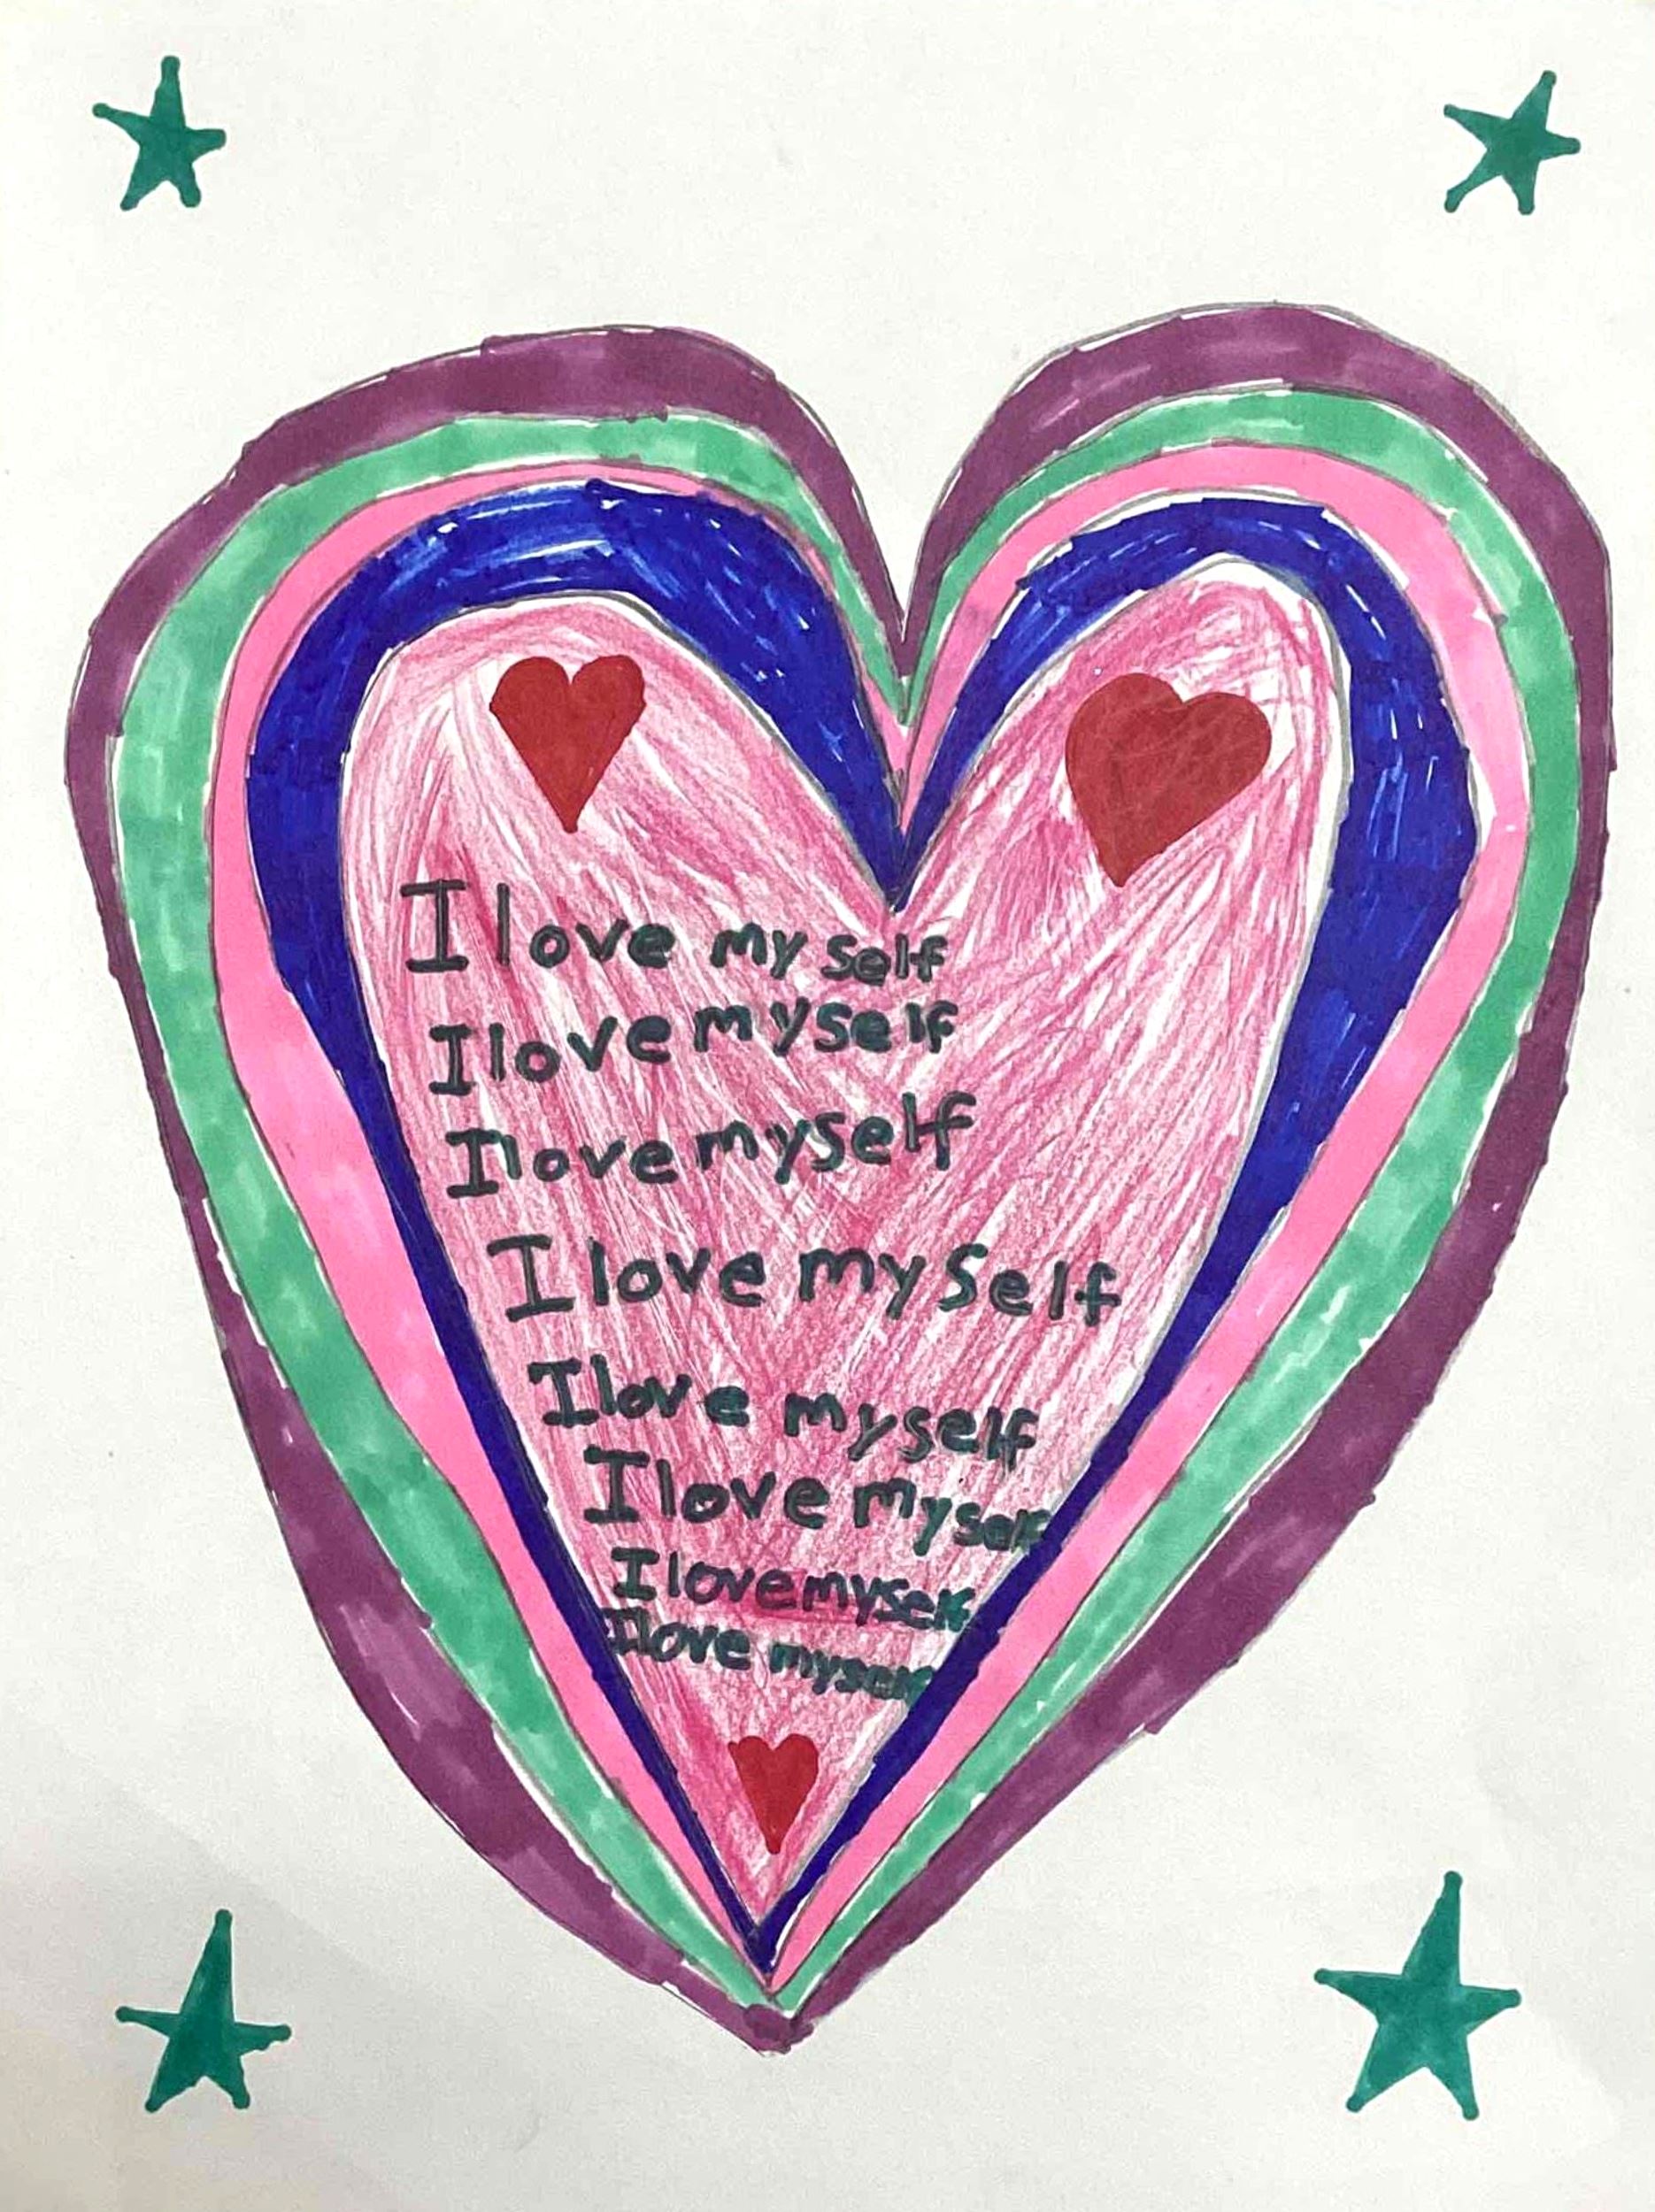 I love my self
I love myself
I love myself
I love my self
I love myself
I love myself
I love myself
I love myself